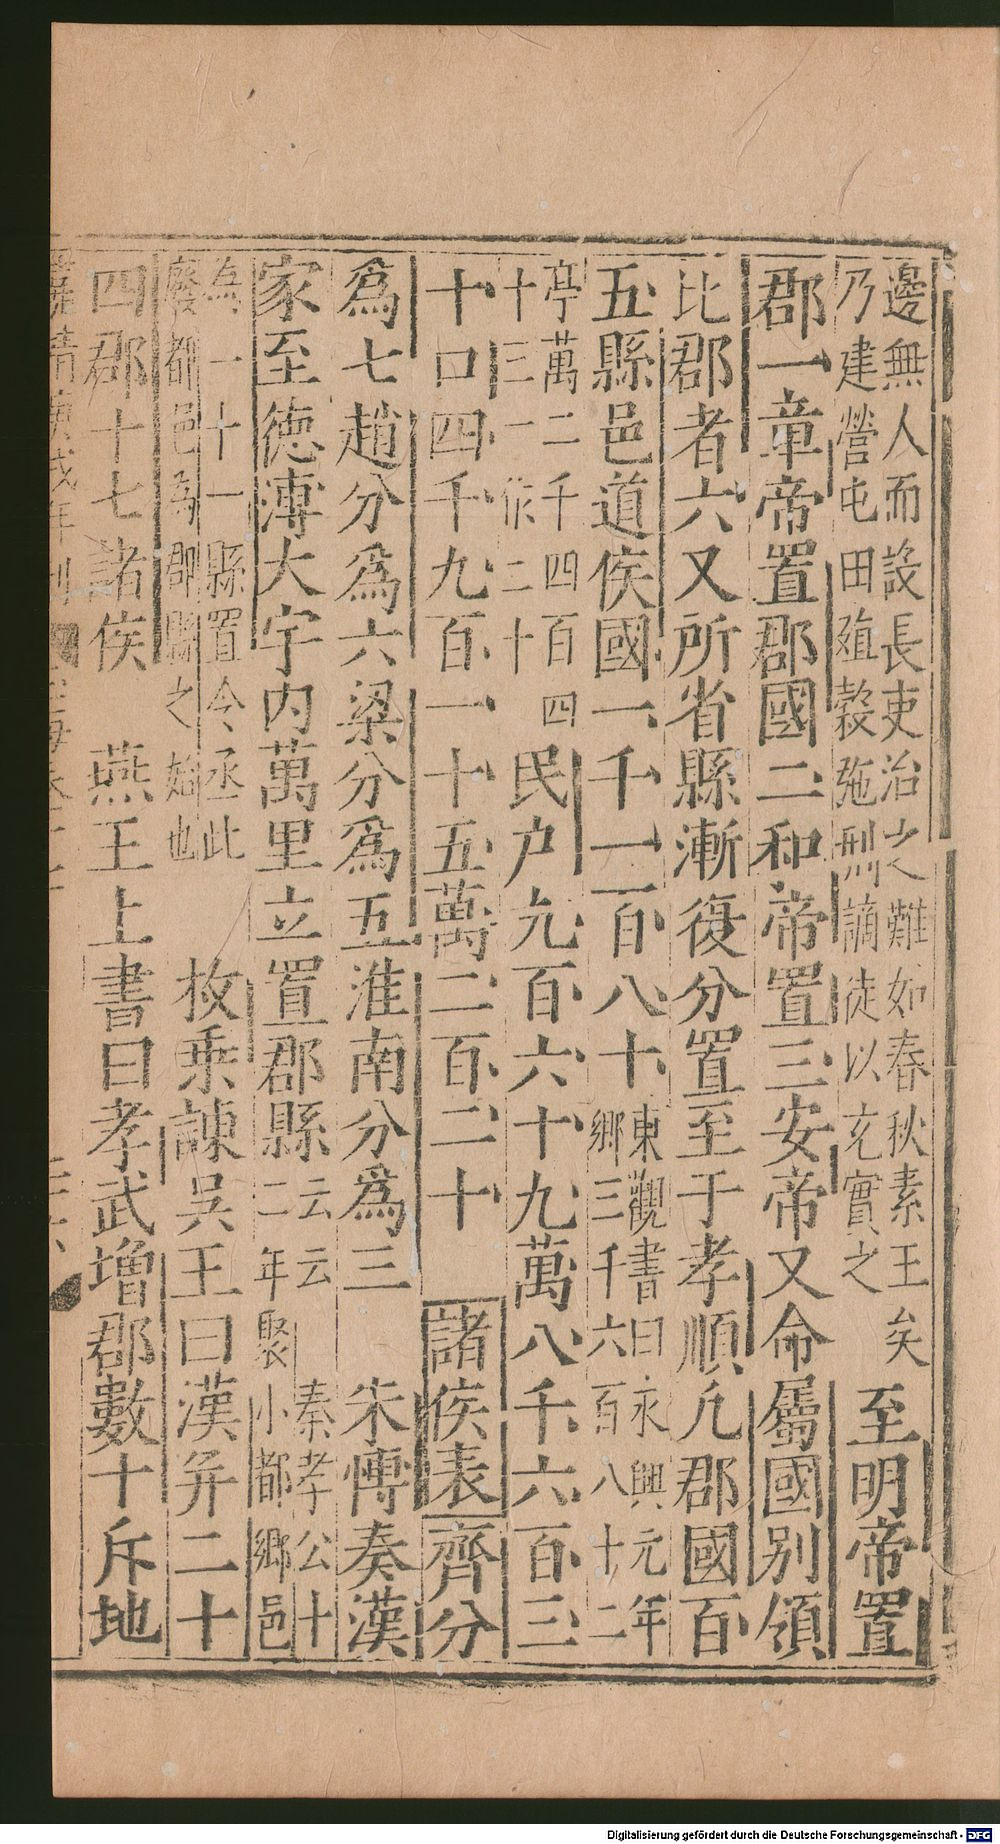 邊無人而設長吏治之難如春秋素王矣
乃建營屯田殖穀弛刑謫徒以充實之
至明帝置
郡一章帝置郡國二和帝置三安帝又命屬國别領
比郡者六又所省縣漸復分置至于孝順凡郡國百
五縣邑道侯國一千一百八十
東觀書曰永興元年
鄉三千六百八十二
亭萬二千四百四
十三一作二十
民户九百六十九萬八千六百三
十口四千九百一十五萬二百二十 諸侯表齊分
爲七趙分爲六梁分爲五淮南分爲三 朱愽奏漢
家至徳溥大宇内萬里立置郡縣
云云 秦孝公十
二年聚小都鄉邑
為一十一縣置令丞此
廢都邑為郡縣之始也
枚乗諫吳王曰漢并二十
四郡十七諸侯 燕王上書曰孝武增郡數十斥地
Digitalisierung gefördert durch die Deutsche Forschungsgemeinschaft - DFG